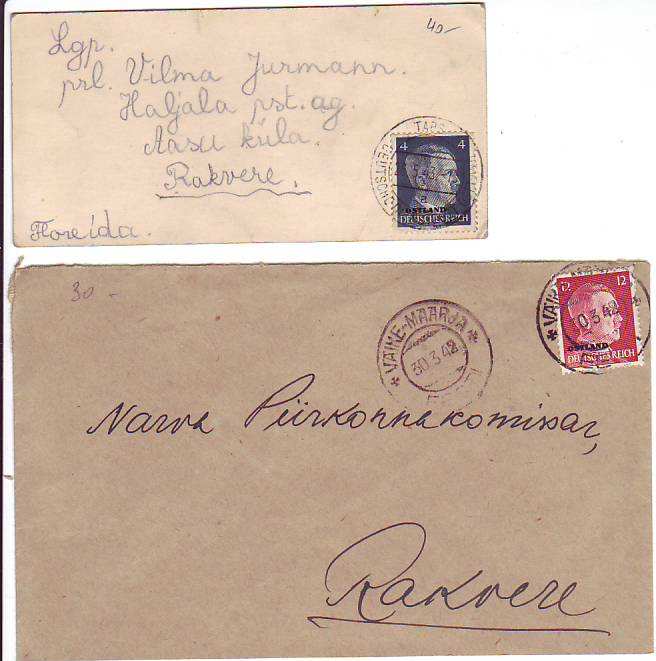 40-
Lgp.
prl. Vilma Jurmann.
Haljala pst. ag.
Aasu küla.
Rakvere.
Floreida.
4 4
OSTLAND
DEUTSCHES REICH
30-
* VÄIKE-MAARJA *
30.3.42
12 12
30.3.42
OSTLAND
Narva Piirkonnakomissar,
Rakvere